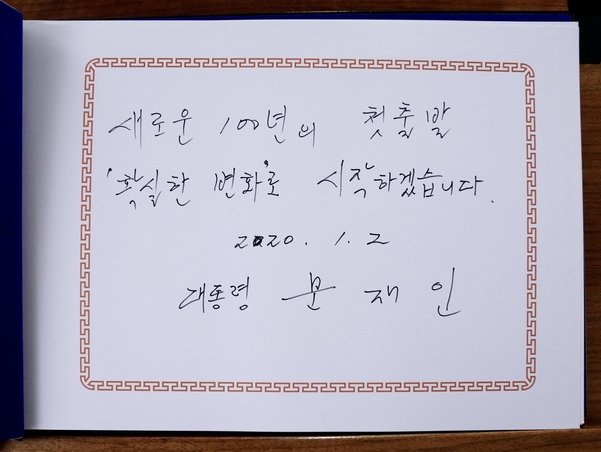 새로운 100년의 첫출발
'확실한 변화'로 시작하겠습니다.
2020. 1. 2
대통령 문재인